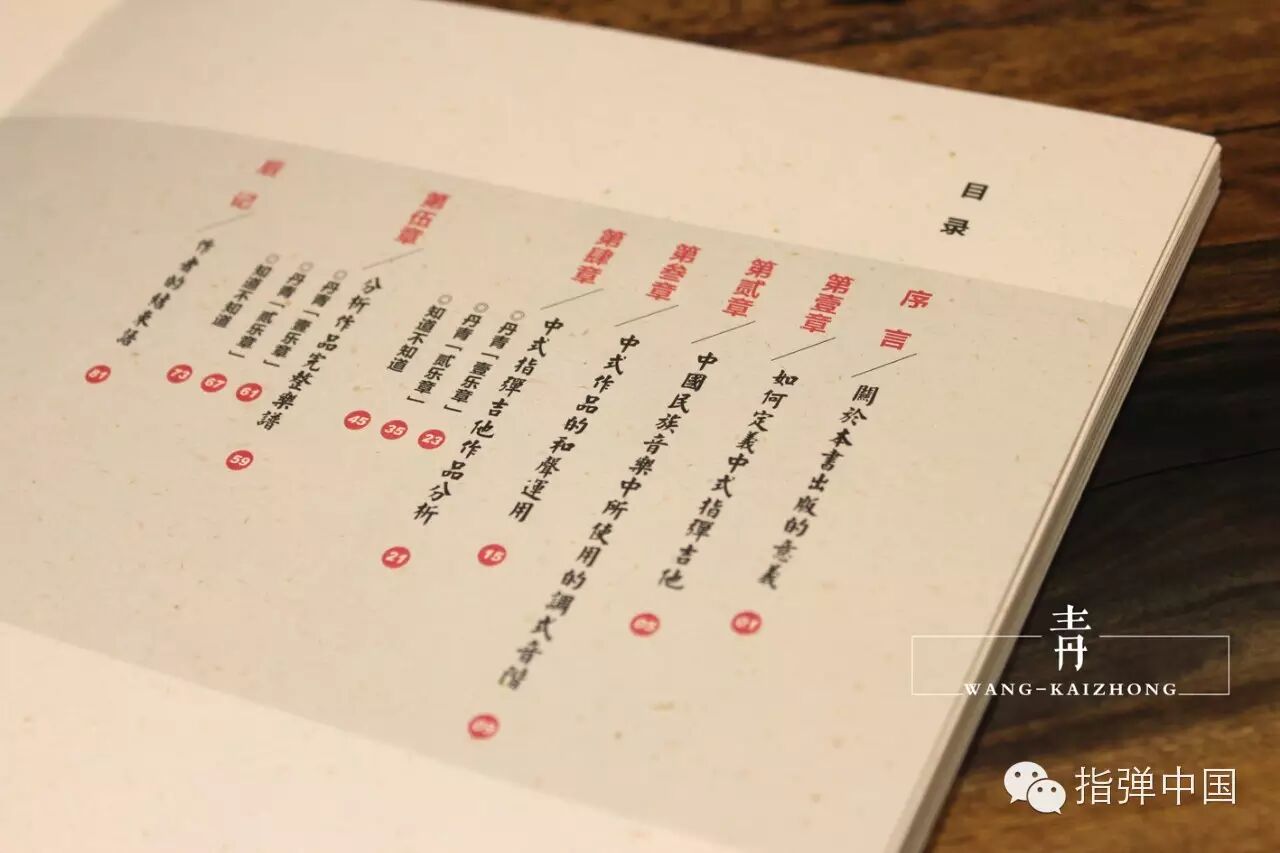 目录
序言
關於本書出版的意義
01
第壹章
如何定義中式指彈吉他
05
第贰章
中國民族音樂中所使用的調式音階
第叁章
中式作品的和聲運用
15
第肆章
中式指彈吉他作品分析
21
◎丹青「壹乐章」
23
◎丹青「贰乐章」
35
◎知道不知道
45
第伍章
分析作品完整樂譜
59
◎丹青「壹乐章」
61
◎丹青「贰乐章」
67
◎知道不知道
73
后记
作者的結束語
81
丹青
WANG-KAIZHONG
指弹中国